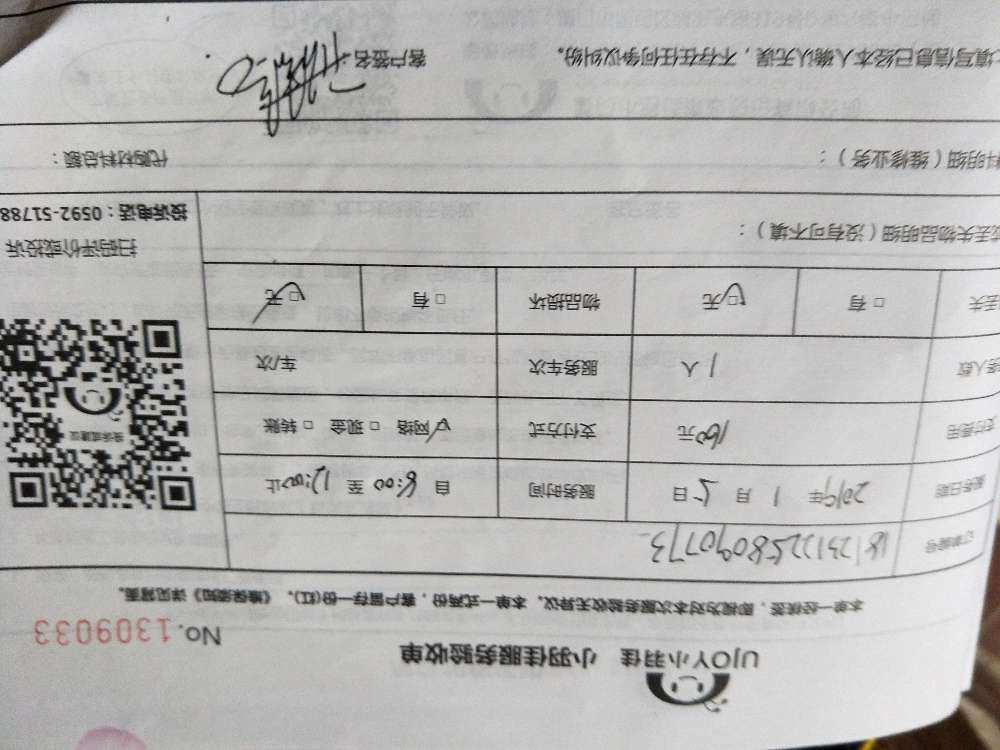 UJOY小羽佳 小羽佳服务验收单
No.1309033
本单一经核签,即视为对本次服务验收无异议。本单一式两份,客户留存一份(红)。《维保须知》详见背面。
订单编号 18123112258090773
服务日期 2019年 1 月 5 日 服务时间 自 8:00 至 12:00止
支付费用 160元 支付方式 ☑网络 □现金 □转账
务人数 1人 服务车次 车/次
丢失 □有 ☑无 物品损坏 □有 ☑无
或丢失物品明细(没有可不填):
扫码评价或投诉
投诉电话:0592-51788
投诉或建议
料明细(维修业务): 代购材料总额:
填写信息已经本人确认无误,不存在任何争议纠纷。 客户签名: